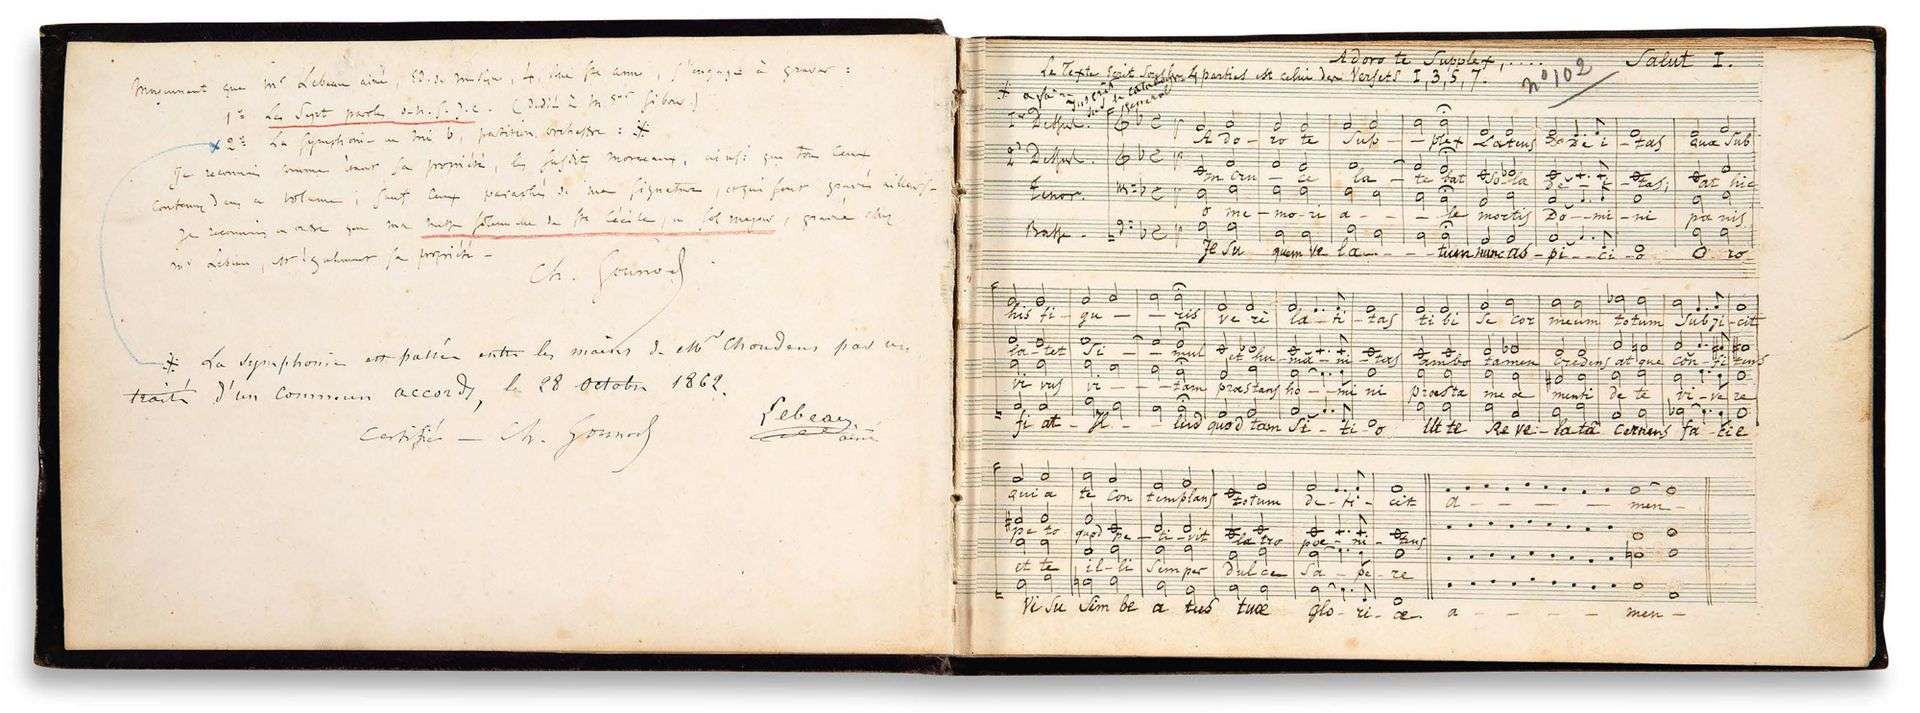 moyennant que Mr Lebeau aîné, Ed. de musique, 4, rue Ste anne, s'engage à graver :
1º Les Sept paroles de N. S. J. C. (dédié à Mgr Gibow)
x 2º La Symphonie en mi b, partition, orchestre :
Je reconnais comme étant sa propriété, les susdits morceaux, ainsi que tous ceux
contenus dans ce volume, sauf ceux de ma signature,
Je reconnais en outre que ma messe solennelle de Ste Cécile, en sol majeur, gravée chez
Mr Lebeau, est également sa propriété -
Ch. Gounod
La symphonie est passée entre les mains de Mr Choudens par un
traité d'un commun accord, le 28 octobre 1862.
Certifié — Ch. Gounod
Lebeau aîné
Adoro te Supplex, .... Salut I.
Le Texte écrit sous les 4 parties est celui des Versets 1, 3, 5, 7. nº 102
1er Dessus. A do - ro te Sup - - plex Latens De i - tas quæ Sub
2e Dessus. in cru - ce la - te bat sola De - i - tas, at hic
Tenor. o me - mo - ri a - - - le mortis Do - mi - ni pa nis
Basse. Je su quem ve la - - - tum nunc as - pi - ci - o O ro
his fi - gu - - ris ve re la - ti - tas ti bi se cor meum totum Subji - cit
la - tet Si - - mul et hu - ma - ni - tas ambo tamen credens at que con - fi - tens
vi vus vi - - - tam præstans ho - mi ni præsta me æ menti de te vi - ve re
fi at - Il - - lud quod tam Si - ti o Ut te Re ve - lata cernens fa - cie
qui a te con templans totum de - fi - cit a - - - - men -
pe to quod pe - ti - vit la tro pœ - ni - tens
et te il - li semper dulce Sa - pe - re
Vi su Sim be a tus tuæ glo - ri - æ a - - - - - men -